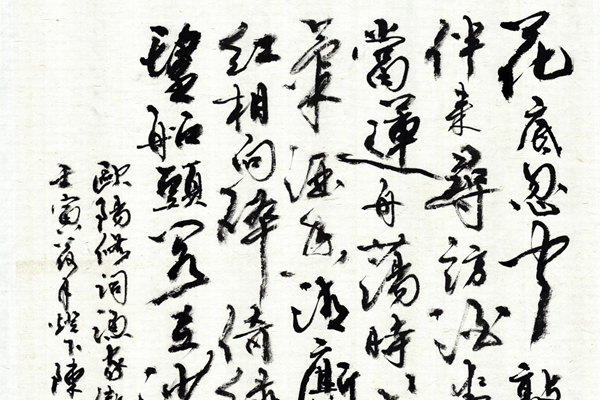 花底忽聞敲
伴来尋訪酒
當蓮舟蕩時
氣酒香清廝
红相向醉倚绿
船頭閣在沙
歐陽修詞漁家傲
壬寅月燈下陳